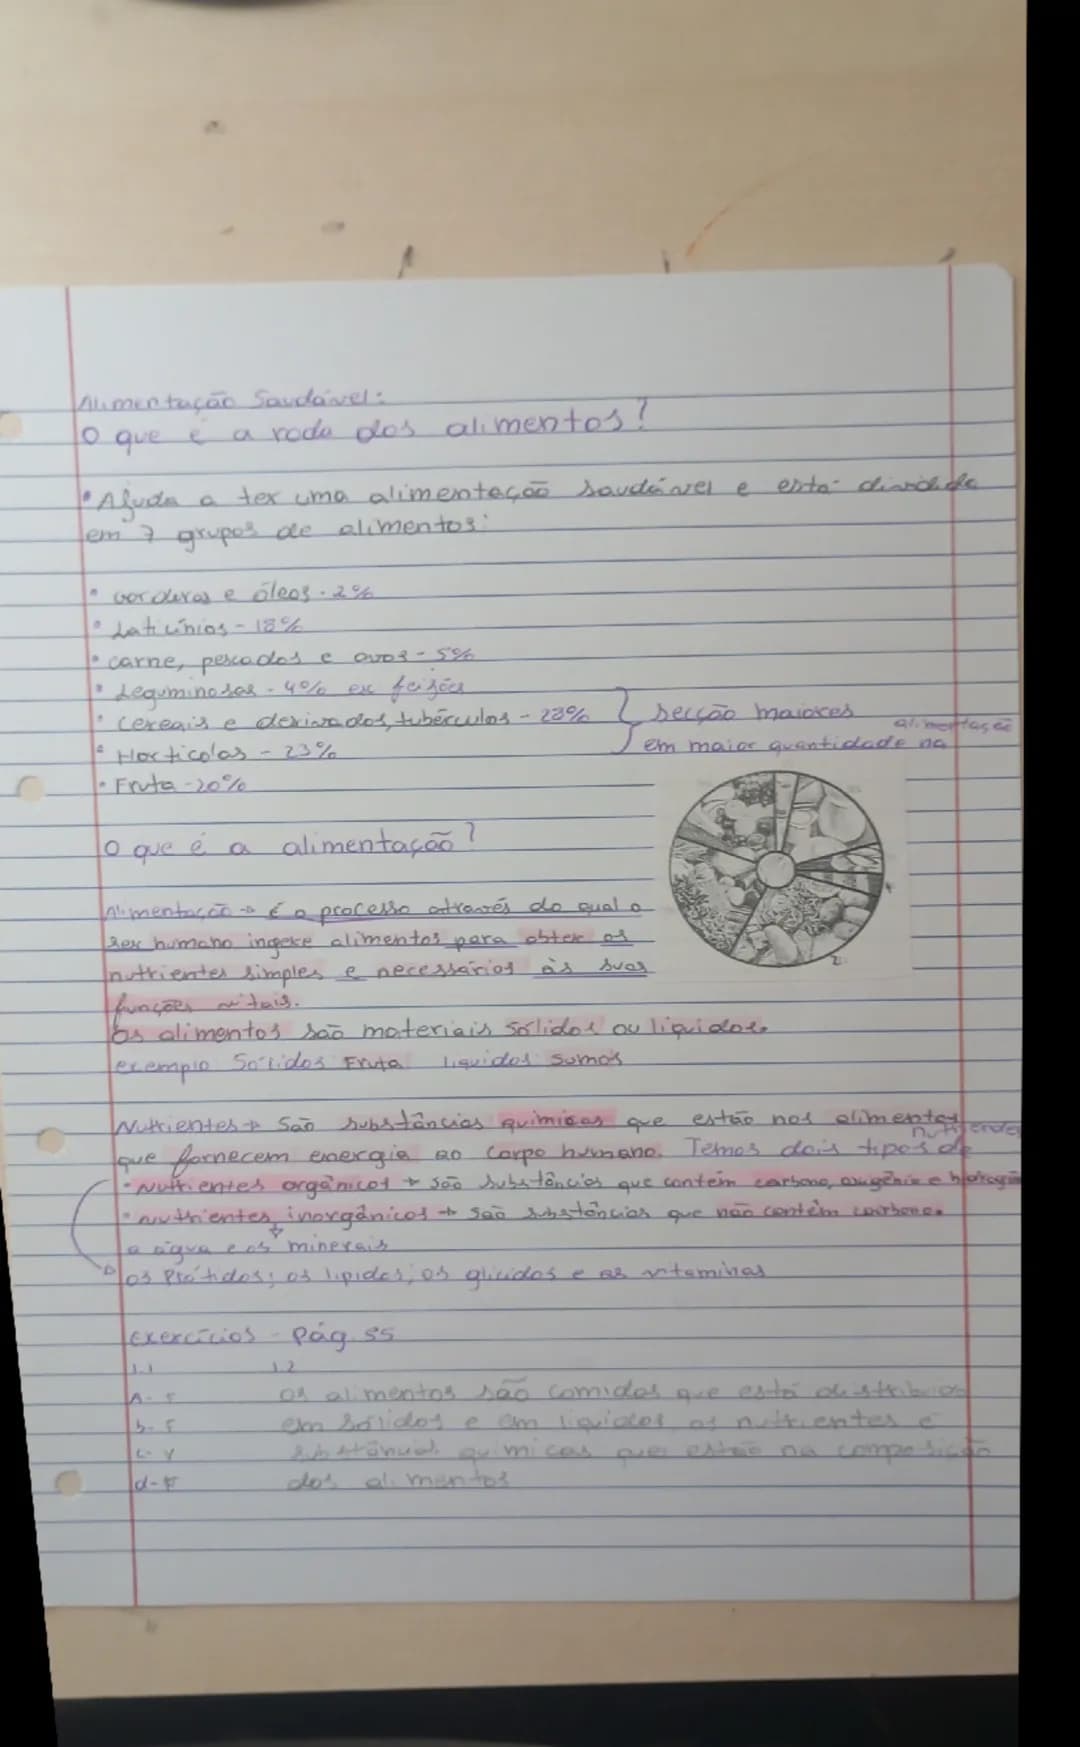 Alimentação Saudável:
O que é a roda dos alimentos?
• Ajuda a ter uma alimentação saudável e está dividida
em 7 grupos de alimentos:
• Gorduras e óleos - 2%
• Laticínios - 18%
• carne, pescados e ovos - 5%
• Leguminosas - 4% ex feijões
• Cereais e derivados, tubérculos - 28% } secção maiores
• Hortícolas - 23% em maior quantidade na alimentação
• Fruta - 20%
O que é a alimentação?
Alimentação → É o processo através do qual o
ser humano ingere alimentos para obter os
nutrientes simples e necessários às suas
funções vitais.
Os alimentos são materiais sólidos ou líquidos.
exemplo Sólidos Fruta Liquidos sumos
Nutrientes → São substâncias químicas que estão nos alimentos
que fornecem energia ao corpo humano. Temos dois tipos de
• Nutrientes orgânicos → são substâncias que contém carbono, oxigénio e
• nutrientes inorgânicos → são substâncias que não contêm carbono.
a água e os minerais
os Prótidos; os lípidos; os glícidos e as vitaminas
Exercícios - Pág. 55
1.1 1.2
A- F os alimentos são comidas que está
b- F em sólidos e em líquidos os nutrientes é
c- V substâncias químicas que estão na composição
d- F dos alimentos